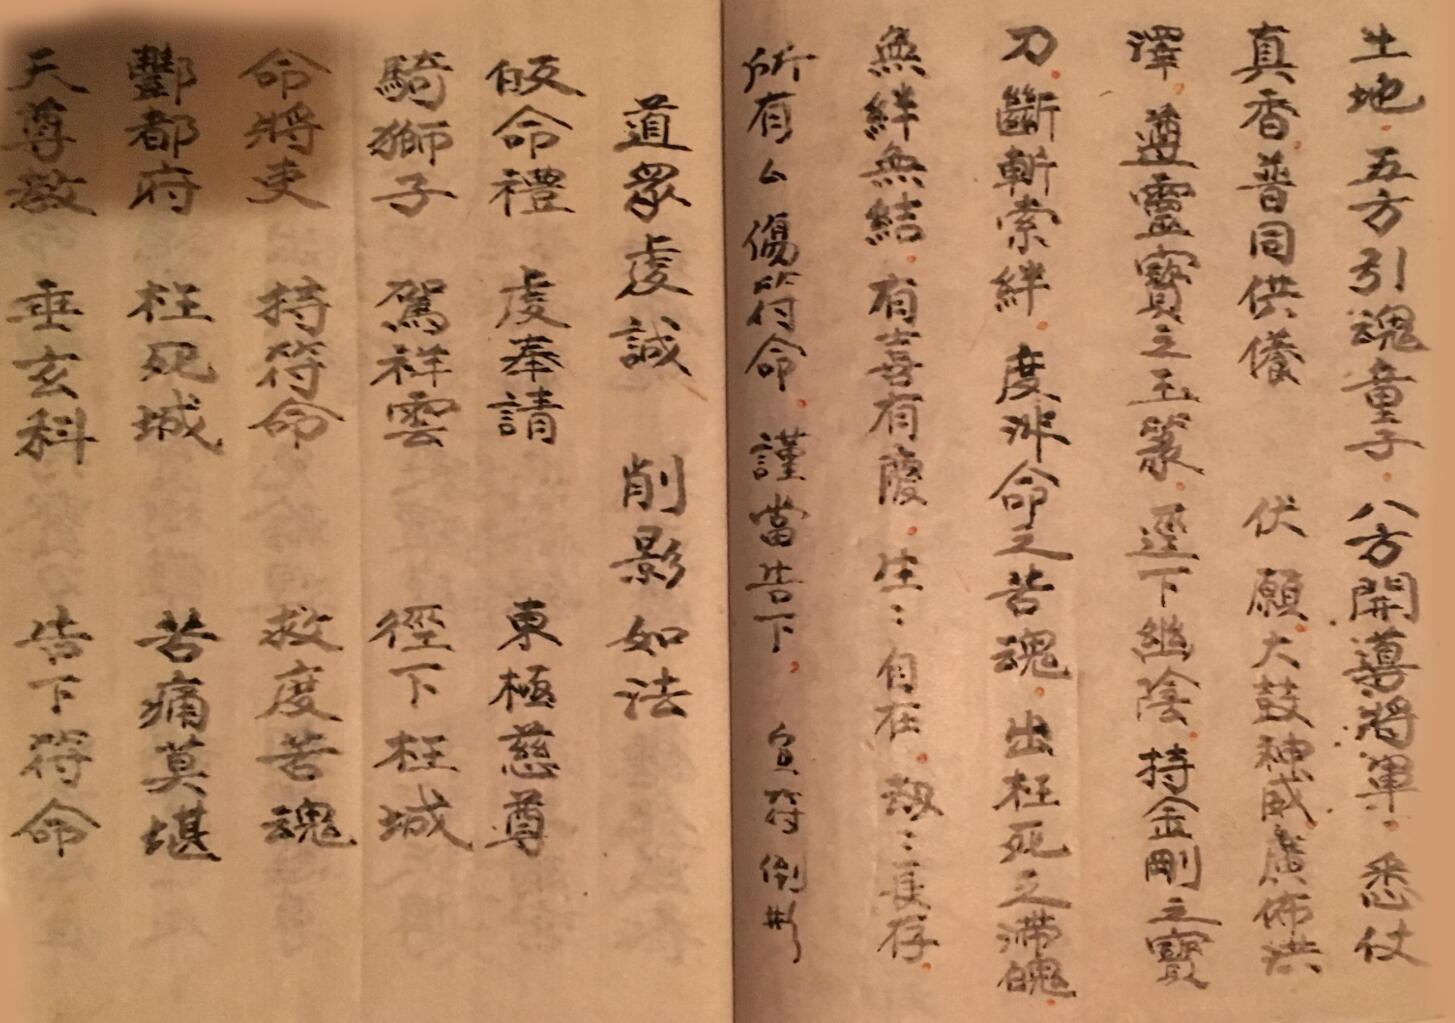 土地五方引魂童子八方開導將軍悉仗
真香普同供養 伏願大鼓神威廣佈洪
澤 靈寶之玉篆逕下幽陰持金剛之寶
刀斷斬索絆度洲命之苦魂出枉死之滯魄
無絆無結有喜有慶生：自在劫：長存
所有厶傷符命謹當告下
道眾虔誠 削影如法
皈命禮 虔奉請 東極慈尊
騎獅子 駕祥雲 徑下枉城
命將吏 持符命 救度苦魂
酆都府 枉死城 苦痛莫堪
天尊敕 垂玄科 告下符命